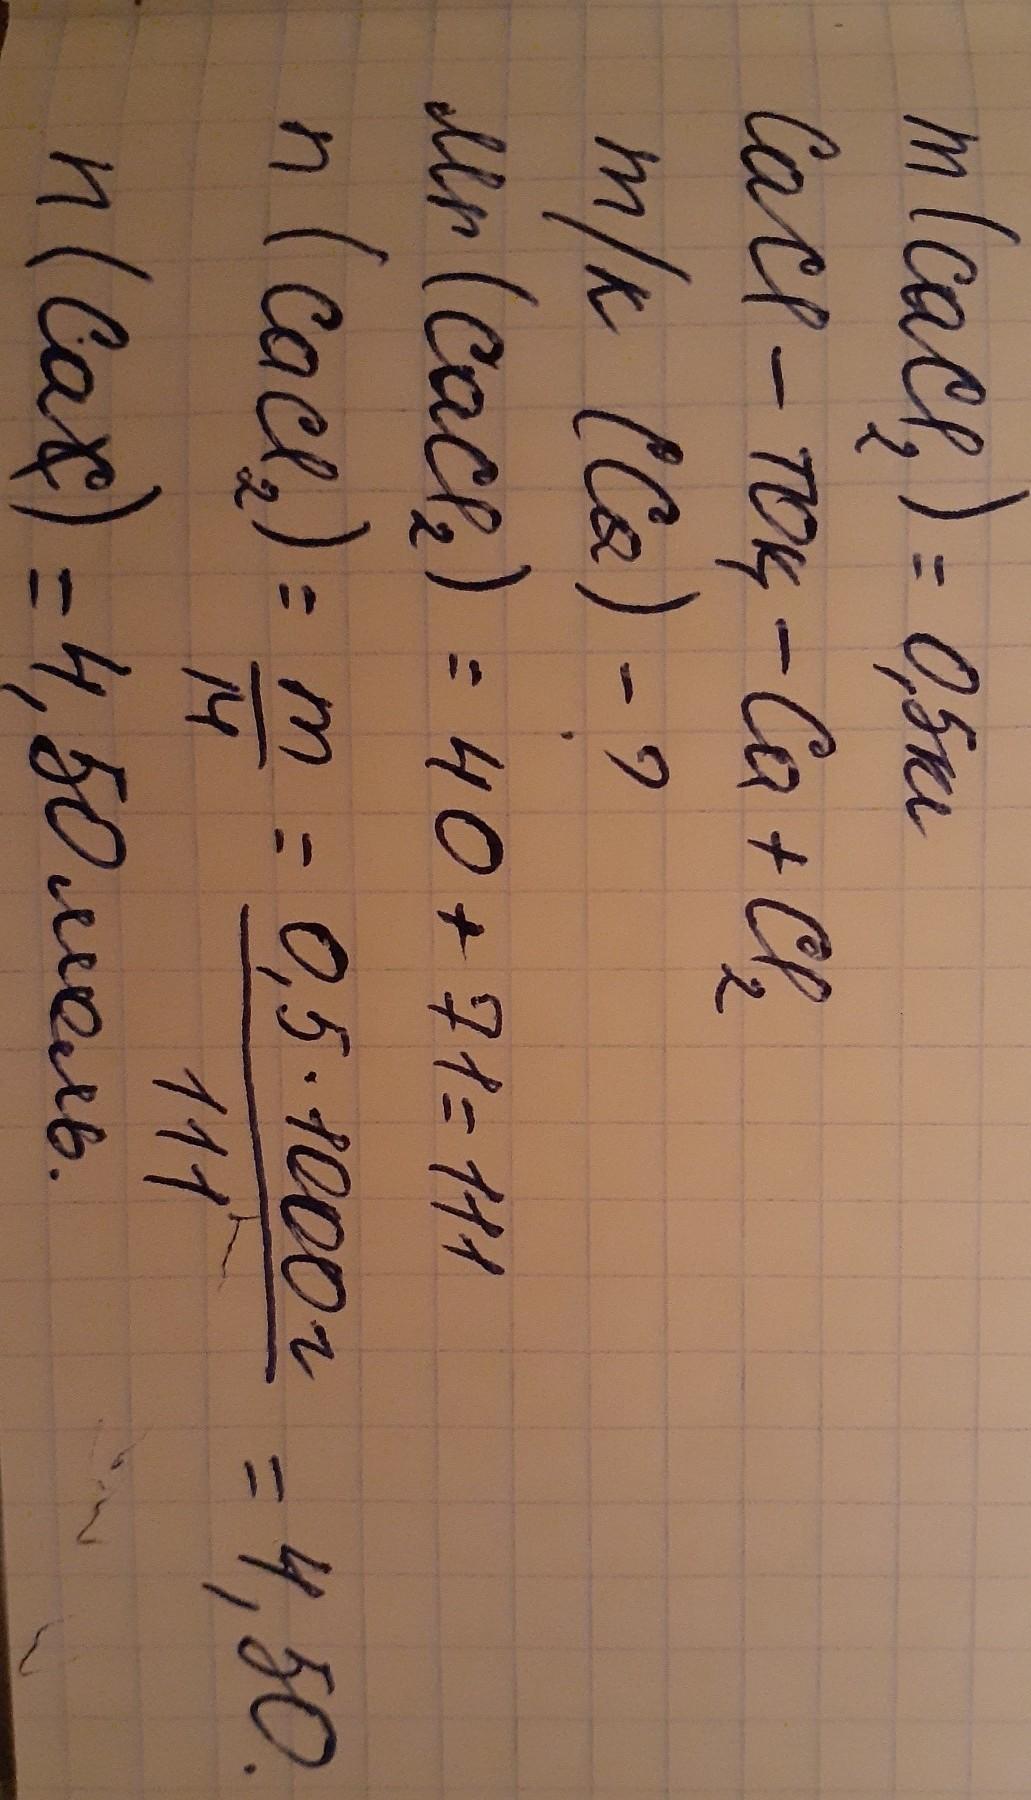 m(CaCl₂) = 0,5кг
CaCl – ток – Ca + Cl₂
m/к (Ca) – ?
Mr(CaCl₂) = 40 + 71 = 111
n(CaCl₂) = m/M = 0,5·1000г/111 = 4,50.
n(Ca) = 4,50 моль.